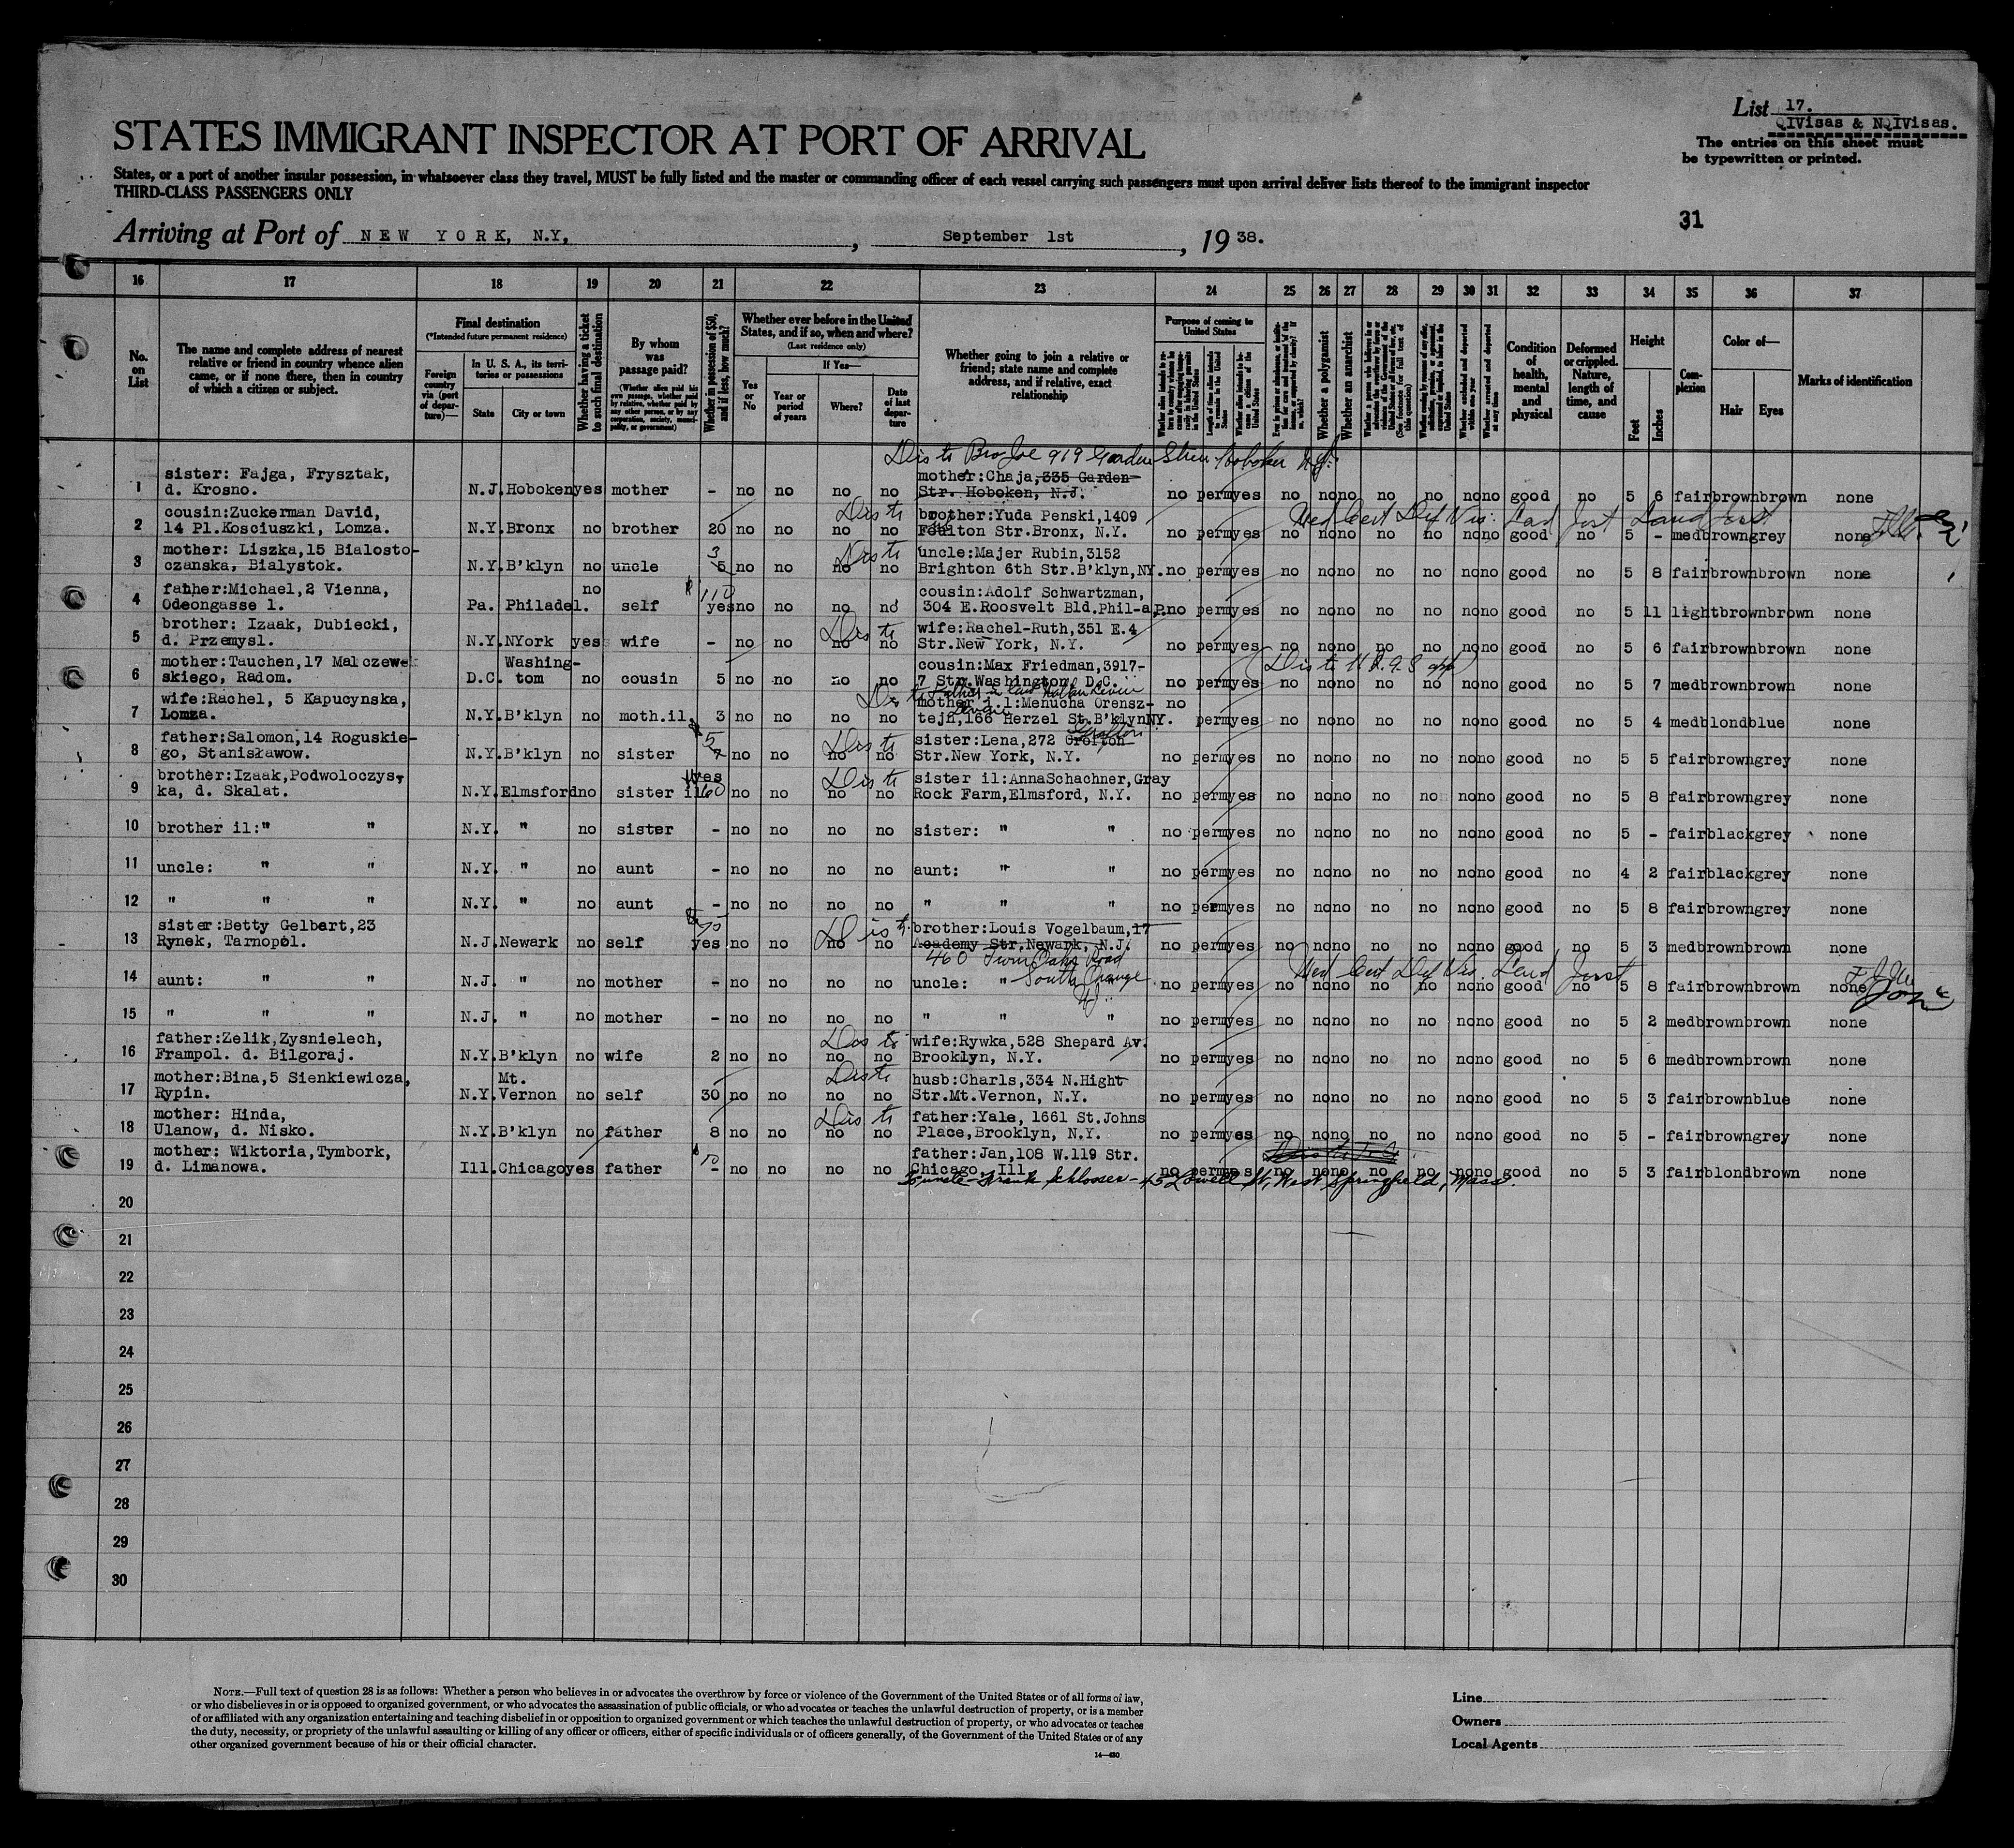 List 17.
QIVisas & NQIVisas.
The entries on this sheet must
be typewritten or printed.
STATES IMMIGRANT INSPECTOR AT PORT OF ARRIVAL
States, or a port of another insular possession, in whatsoever class they travel, MUST be fully listed and the master or commanding officer of each vessel carrying such passengers must upon arrival deliver lists thereof to the immigrant inspector
THIRD-CLASS PASSENGERS ONLY
31
Arriving at Port of NEW YORK, N.Y, , September 1st , 19 38.
16 17 18 19 20 21 22 23 24 25 26 27 28 29 30 31 32 33 34 35 36 37
No. on List
The name and complete address of nearest relative or friend in country whence alien came, or if none there, then in country of which a citizen or subject.
Final destination
(*Intended future permanent residence)
Foreign country via (port of departure)—
In U. S. A., its territories or possessions
State City or town
Whether having a ticket to such final destination
By whom was passage paid?
(Whether alien paid his own passage, whether paid by relative, whether paid by any other person, or by any corporation, society, municipality, or government)
Whether in possession of $50, and if less, how much?
Whether ever before in the United States, and if so, when and where?
(Last residence only)
Yes or No
If Yes—
Year or period of years
Where?
Date of last departure
Whether going to join a relative or friend; state name and complete address, and if relative, exact relationship
Purpose of coming to United States
Whether a polygamist
Whether an anarchist
Condition of health, mental and physical
Deformed or crippled. Nature, length of time, and cause
Height
Feet Inches
Complexion
Color of—
Hair Eyes
Marks of identification
Dis to Bro Joe 919 Garden Hoboken N.J.
1 sister: Fajga, Frysztak, mother:Chaja,335 Garden
d. Krosno. N.J. Hoboken yes mother - no no no no Str. Hoboken, N.J. no perm yes no no no no no no no good no 5 6 fair brown brown none
2 cousin:Zuckerman David, Dis to brother:Yuda Penski,1409 Med Cert Def Vis.
14 Pl.Kosciuszki, Lomza. N.Y. Bronx no brother 20 no no no no Str.Bronx, N.Y. no perm yes no no no no no no no good no 5 - med brown grey none
3 mother: Liszka,15 Bialosto- 3 Dis to uncle:Majer Rubin,3152
czanska, Bialystok. N.Y. B'klyn no uncle 5 no no no no Brighton 6th Str.B'klyn,NY. no perm yes no no no no no no no good no 5 8 fair brown brown none
4 father:Michael,2 Vienna, no 110 cousin:Adolf Schwartzman,
Odeongasse 1. Pa. Philadel. self yes no no no no 304 E.Roosvelt Bld.Phil-a,P. no perm yes no no no no no no no good no 5 11 light brown brown none
5 brother: Izaak, Dubiecki, Dis to wife:Rachel-Ruth,351 E.4
d. Przemysl. N.Y. NYork yes wife - no no no no Str.New York, N.Y. no perm yes no no no no no no no good no 5 6 fair brown brown none
6 mother:Tauchen,17 Malczew- Washing- cousin:Max Friedman,3917-
skiego, Radom. D.C. tom no cousin 5 no no no no 7 Str.Washington, D.C. no perm yes no no no no no no no good no 5 7 med brown brown none
Dis to Father in law
7 wife:Rachel, 5 Kapucynska, mother i.l:Menucha Orensz- no
Lomza. N.Y. B'klyn no moth.il. 3 no no no no tejn,166 Herzel St.B'klynNY. perm yes no no no no no no no good no 5 4 med blond blue none
8 father:Salomon,14 Roguskie- 5 Dis to sister:Lena,272 Grofton
go, Stanisławow. N.Y. B'klyn no sister 7 no no no no Str.New York, N.Y. no perm yes no no no no no no no good no 5 5 fair brown grey none
9 brother:Izaak,Podwoloczys- yes Dis to sister il:AnnaSchachner,Gray
ka, d. Skalat. N.Y. Elmsford no sister il 60 no no no no Rock Farm,Elmsford, N.Y. no perm yes no no no no no no no good no 5 8 fair brown grey none
10 brother il:" " N.Y. " no sister - no no no no sister: " " no perm yes no no no no no no no good no 5 - fair black grey none
11 uncle: " " N.Y. " no aunt - no no no no aunt: " " no perm yes no no no no no no no good no 4 2 fair black grey none
12 " " " N.Y. " no aunt - no no no no " " " no perm yes no no no no no no no good no 5 8 fair brown grey none
13 sister:Betty Gelbart,23 Dis to brother:Louis Vogelbaum,17
Rynek, Tarnopol. N.J. Newark no self yes no no no no Academy Str,Newark, N.J. no perm yes no no no no no no no good no 5 3 med brown brown none
460 Twin Oaks Road Med Cert Def Vis.
14 aunt: " " N.J. " no mother - no no no no uncle: " South Orange " no perm yes no no no no no no no good no 5 8 fair brown brown none
NJ
15 " " " N.J. " no mother - no no no no " " " no perm yes no no no no no no no good no 5 2 med brown brown none
16 father:Zelik,Zysnielech, Dis to wife:Rywka,528 Shepard Av.
Frampol. d. Bilgoraj. N.Y. B'klyn no wife 2 no no no no Brooklyn, N.Y. no perm yes no no no no no no no good no 5 6 med brown brown none
17 mother:Bina,5 Sienkiewicza, Mt. Dis to husb:Charls,334 N.Hight
Rypin. N.Y. Vernon no self 30 no no no no Str.Mt.Vernon, N.Y. no perm yes no no no no no no no good no 5 3 fair brown blue none
18 mother: Hinda, Dis to father:Yale, 1661 St.Johns
Ulanow, d. Nisko. N.Y. B'klyn no father 8 no no no no Place,Brooklyn, N.Y. no perm yes no no no no no no no good no 5 - fair brown grey none
19 mother: Wiktoria,Tymbork, father:Jan,108 W.119 Str.
d. Limanowa. Ill. Chicago yes father - no no no no Chicago, Ill. no perm yes no no no no no no no good no 5 3 fair blond brown none
uncle - Frank Schlosser - 45 Lowell St, West Springfield, Mass.
20
21
22
23
24
25
26
27
28
29
30
NOTE.—Full text of question 28 is as follows: Whether a person who believes in or advocates the overthrow by force or violence of the Government of the United States or of all forms of law,
or who disbelieves in or is opposed to organized government, or who advocates the assassination of public officials, or who advocates or teaches the unlawful destruction of property, or is a member
of or affiliated with any organization entertaining and teaching disbelief in or opposition to organized government or which teaches the unlawful destruction of property, or who advocates or teaches
the duty, necessity, or propriety of the unlawful assaulting or killing of any officer or officers, either of specific individuals or of officers generally, of the Government of the United States or of any
other organized government because of his or their official character.
14—430
Line
Owners
Local Agents